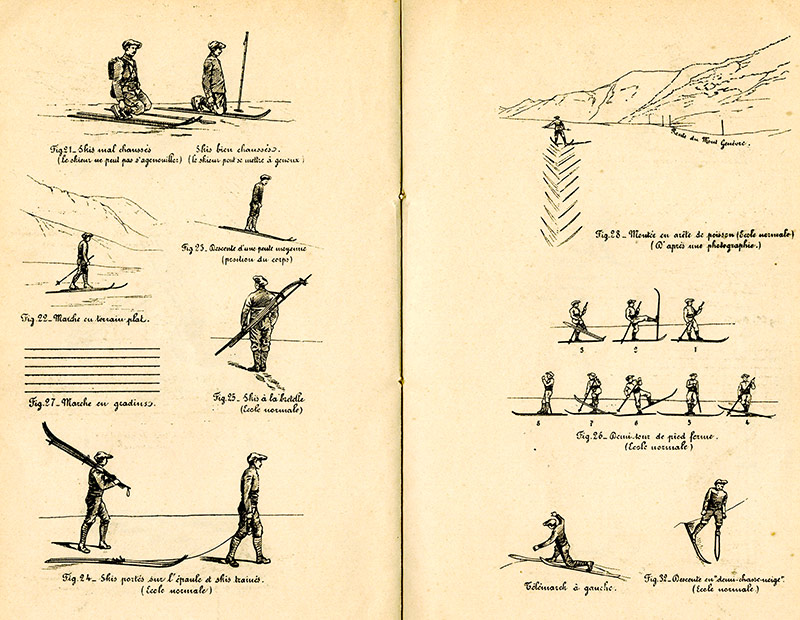 Fig 21_ Skis mal chaussés
(le skieur ne peut pas s'agenouiller)
Skis bien chaussés.
(le skieur peut se mettre à genoux)
Fig 23_ Descente d'une pente moyenne
(position du corps)
Fig.22_ Marche en terrain plat.
Fig.27_ Marche en gradins.
Fig.25_ Skis à la bretelle
(Ecole normale)
Fig.24_ Skis portés sur l'épaule et skis trainés.
(Ecole normale)
Route du Mont Genèvre.
Fig.28_ Montée en arête de poisson (Ecole normale)
(D'après une photographie.)
3 2 1
8 7 6 5 4
Fig.26_ Demi-tour de pied ferme.
(Ecole normale)
Télémarch à gauche.
Fig.32_ Descente en "demi-chasse-neige".
(Ecole normale)